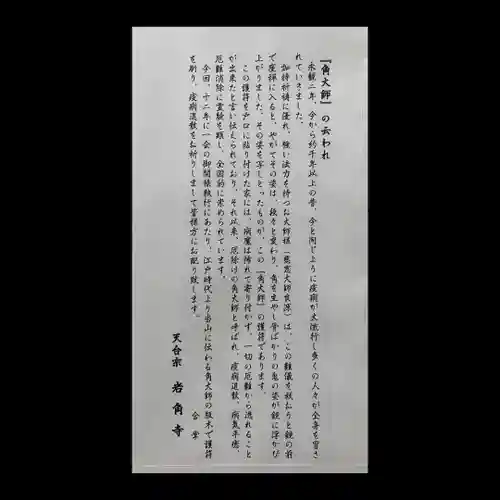 『角大師』の云われ
永観二年、今から約千年以上の昔、今と同じように疫病が大流行し多くの人々が全身を冒さ
れていきました。
加持祈祷に優れ、強い法力を持つお大師様（慈恵大師良源）は、この難儀を祓おうと鏡の前
で座禅に入ると、やがてその姿は、段々と変わり、角を生やし骨ばかりの鬼の姿が鏡に浮かび
上がりました。その姿を写しとったものが、この『角大師』の護符であります。
この護符を戸口に貼り付けた家には、病魔は怖れて寄り付かず、一切の厄難から逃れること
が出来たと言い伝えられており、それ以来、厄除けの角大師と呼ばれ、疫病退散、病気平癒、
厄難消除に霊験を顕し、全国的に崇められています。
今回、十二年に一会の御開帳執行にあたり、江戸時代より当山に伝わる角大師の版木で護符
を刷り、疫病退散をお祈りしまして皆様方にお配り致します。
合掌
天台宗 岩角寺